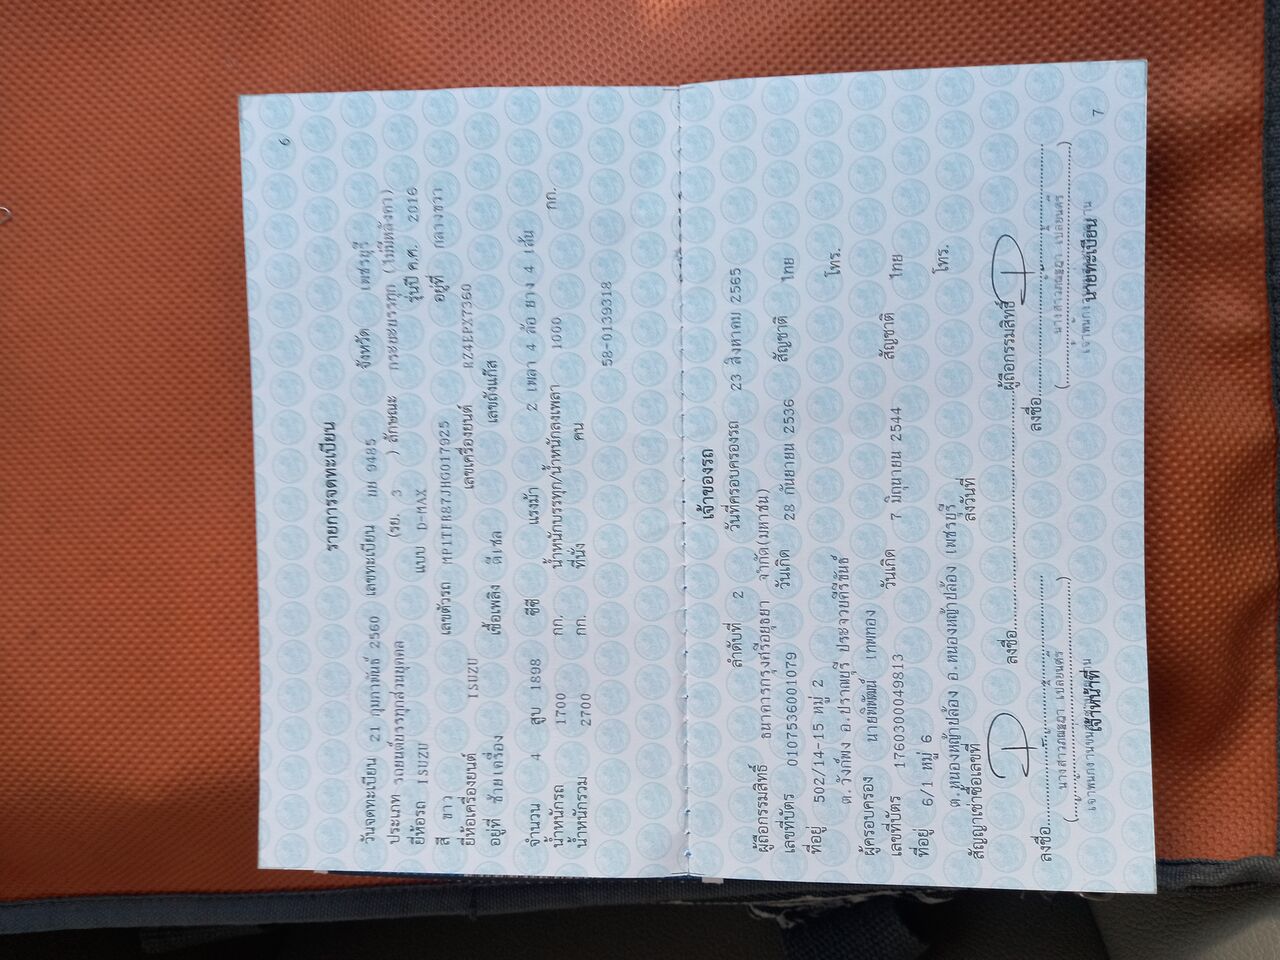 6
รายการจดทะเบียน
วันจดทะเบียน 21 กุมภาพันธ์ 2560 เลขทะเบียน 9485 จังหวัด เพชรบุรี
ประเภท รถยนต์บรรทุกส่วนบุคคล (รย. 3 ) ลักษณะ กระบะบรรทุก (ไม่มีหลังคา)
ยี่ห้อรถ ISUZU แบบ D-MAX รุ่นปี ค.ศ. 2016
สี ขาว เลขตัวรถ MP1TFR87JHG017925 อยู่ที่ กลางขวา
ยี่ห้อเครื่องยนต์ ISUZU เลขเครื่องยนต์ RZ4EPX7360
อยู่ที่ ซ้ายเครื่อง เชื้อเพลิง ดีเซล เลขถังแก๊ส
จำนวน 4 สูบ 1898 ซีซี แรงม้า 2 เพลา 4 ล้อ ยาง 4 เส้น
น้ำหนักรถ 1700 กก. น้ำหนักบรรทุก/น้ำหนักลงเพลา 1000 กก.
น้ำหนักรวม 2700 กก. ที่นั่ง คน
58-0139318
เจ้าของรถ
ลำดับที่ 2 วันที่ครอบครองรถ 23 สิงหาคม 2565
ผู้ถือกรรมสิทธิ์ ธนาคารกรุงศรีอยุธยา จำกัด(มหาชน)
เลขที่บัตร 0107536001079 วันเกิด 28 กันยายน 2536 สัญชาติ ไทย
ที่อยู่ 502/14-15 หมู่ 2 โทร.
ต.วังก์พง อ.ปราณบุรี ประจวบคีรีขันธ์
ผู้ครอบครอง นายพิพัฒน์ เทพทอง
เลขที่บัตร 1760300049813 วันเกิด 7 มิถุนายน 2544 สัญชาติ ไทย
ที่อยู่ 6/1 หมู่ 6 โทร.
ต.หนองหญ้าปล้อง อ.หนองหญ้าปล้อง เพชรบุรี
สัญญาเช่าซื้อเลขที่ ลงวันที่
ลงชื่อ ผู้ถือกรรมสิทธิ์
ลงชื่อ ลงชื่อ
เจ้าหน้าที่ นายทะเบียน
7